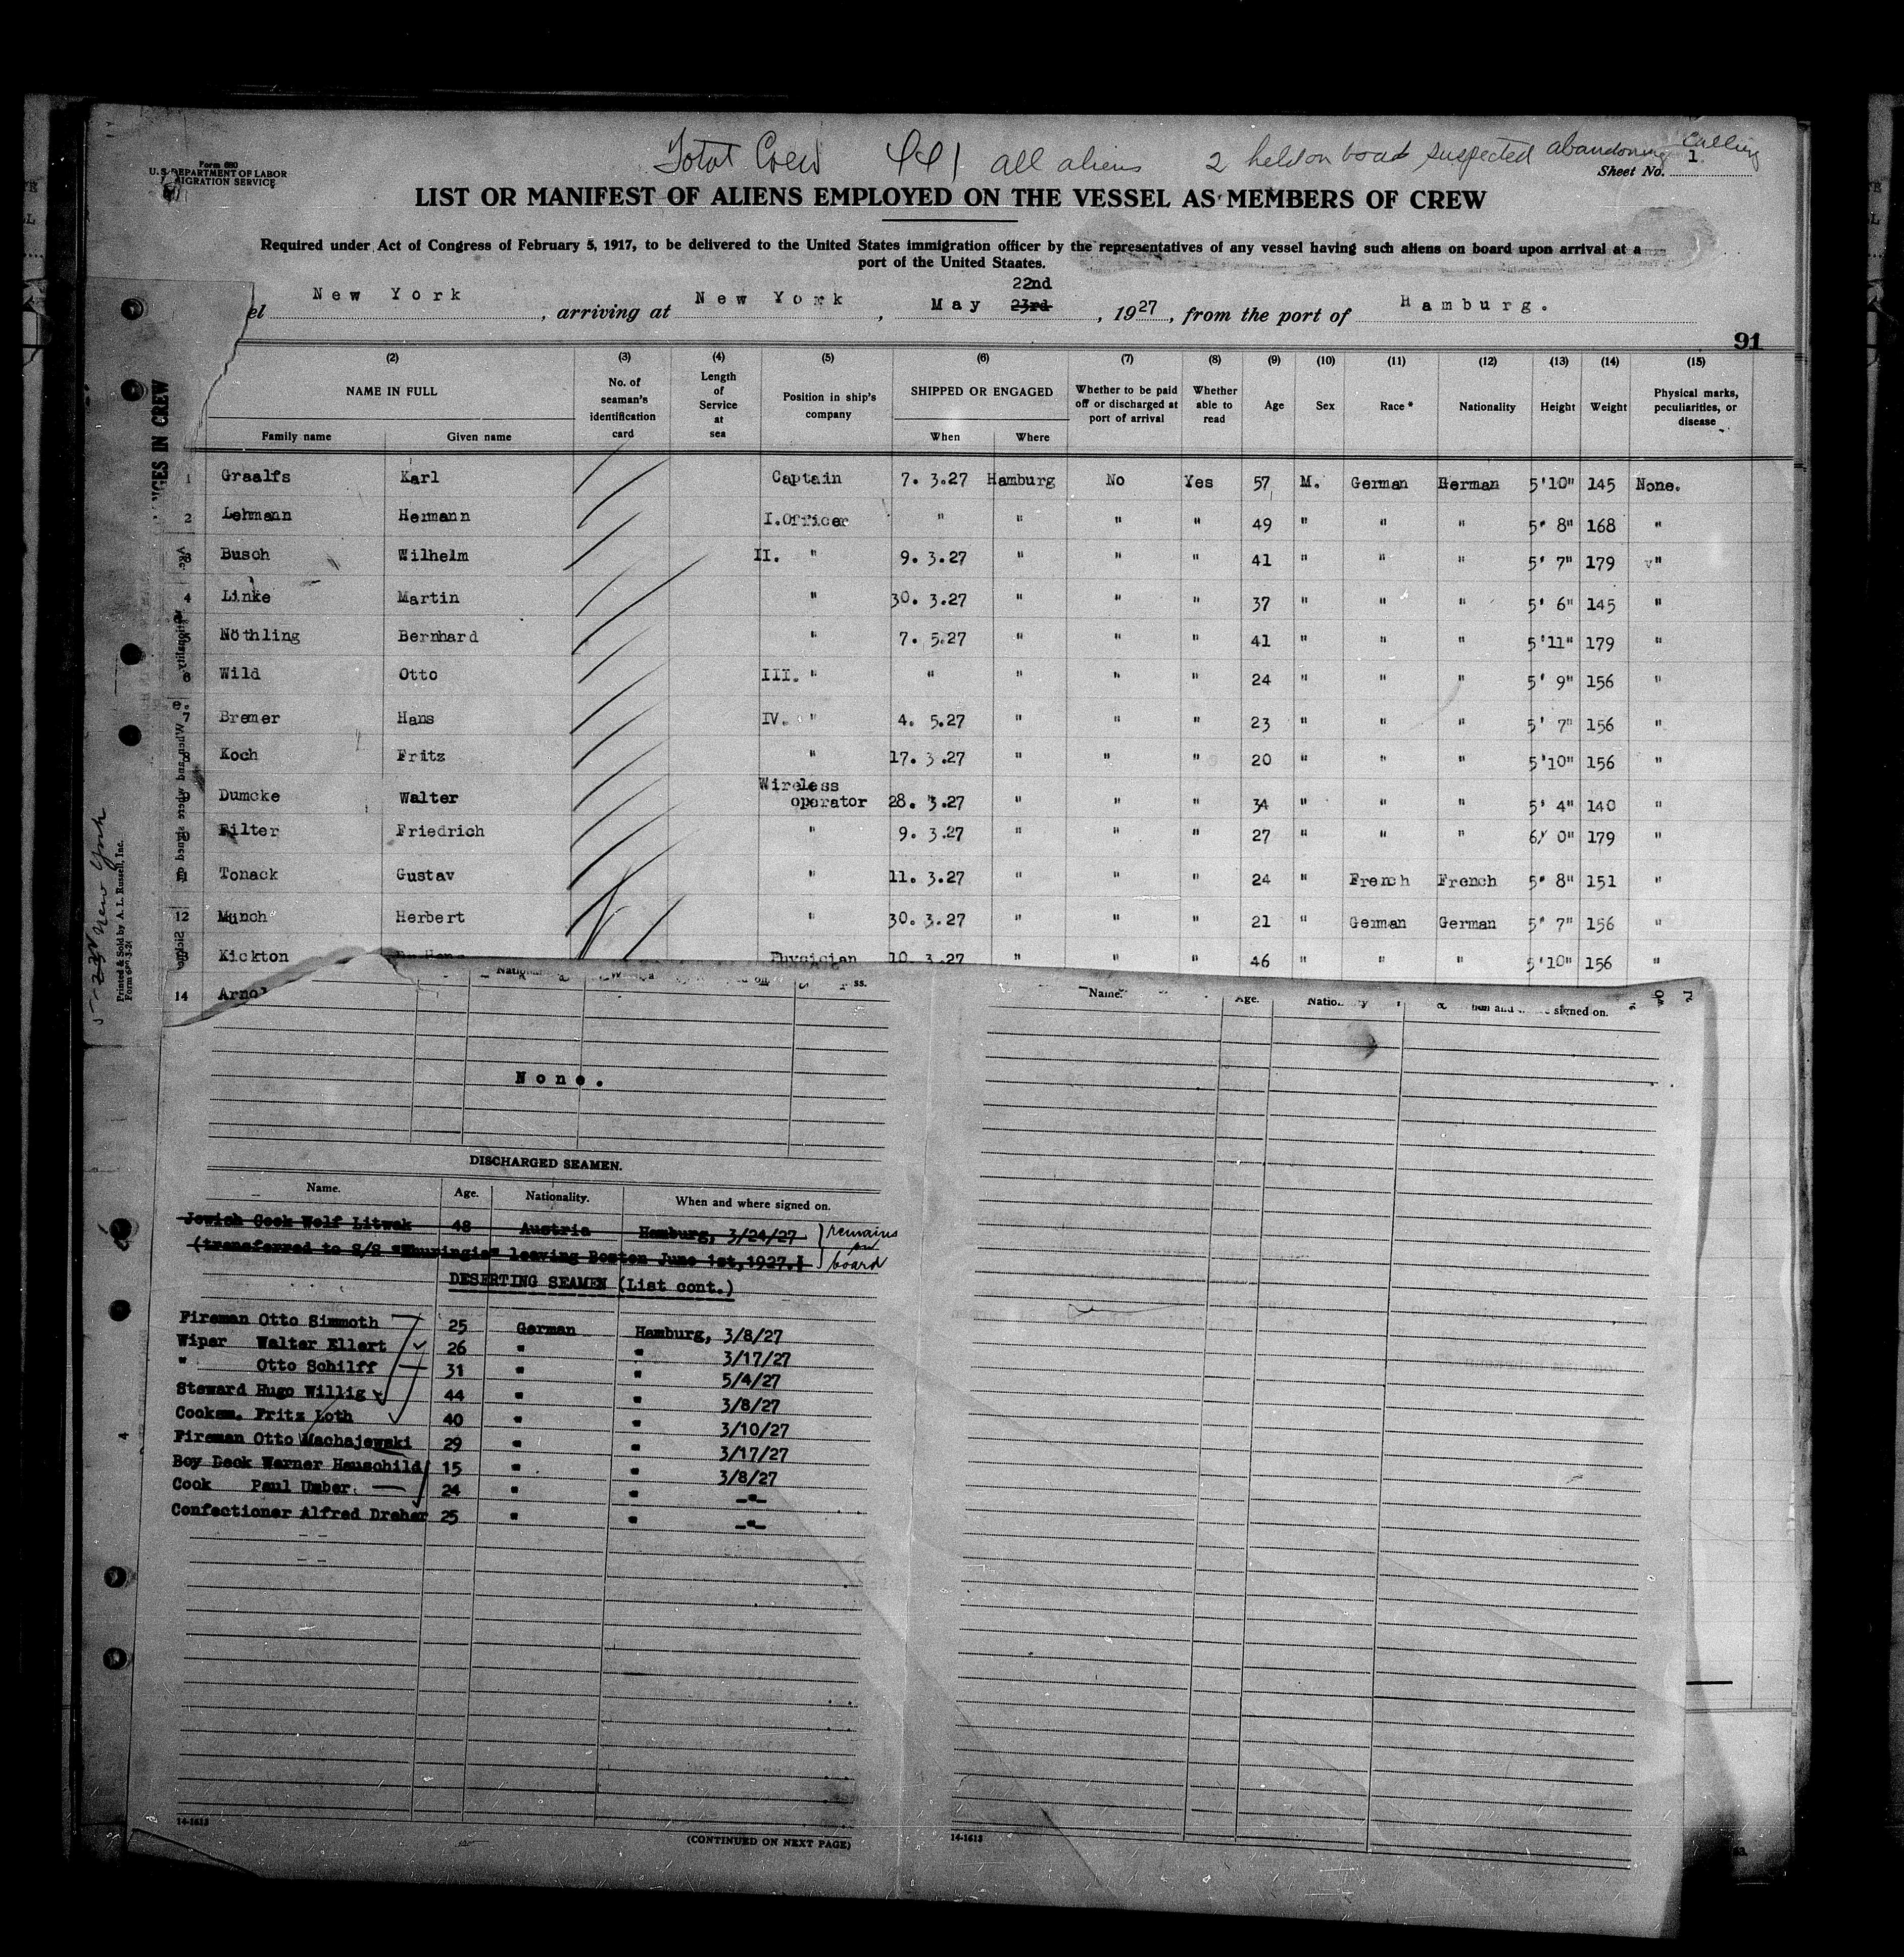 Total Crew 441 all aliens 2 held on board suspected abandoning calling
Form 680
U. S. DEPARTMENT OF LABOR
MIGRATION SERVICE
Sheet No. 1
LIST OR MANIFEST OF ALIENS EMPLOYED ON THE VESSEL AS MEMBERS OF CREW
Required under Act of Congress of February 5, 1917, to be delivered to the United States immigration officer by the representatives of any vessel having such aliens on board upon arrival at a
port of the United Staates.
22nd
el New York, arriving at New York, May 23rd, 1927, from the port of Hamburg.
91
(2) (3) (4) (5) (6) (7) (8) (9) (10) (11) (12) (13) (14) (15)
NAME IN FULL No. of seaman's identification card Length of Service at sea Position in ship's company SHIPPED OR ENGAGED Whether to be paid off or discharged at port of arrival Whether able to read Age Sex Race * Nationality Height Weight Physical marks, peculiarities, or disease
Family name Given name When Where
1 Graalfs Karl Captain 7. 3.27 Hamburg No Yes 57 M. German German 5'10" 145 None.
2 Lehmann Hermann I.Officer " " " " 49 " " " 5' 8" 168 "
3 Busch Wilhelm II. " 9. 3.27 " " " 41 " " " 5' 7" 179 "
4 Linke Martin " 30. 3.27 " " " 37 " " " 5' 6" 145 "
5 Nöthling Bernhard " 7. 5.27 " " " 41 " " " 5'11" 179 "
6 Wild Otto III. " " " " " 24 " " " 5' 9" 156 "
7 Bremer Hans IV. " 4. 5.27 " " " 23 " " " 5' 7" 156 "
8 Koch Fritz " 17. 3.27 " " " 20 " " " 5'10" 156 "
Wireless
9 Dumcke Walter operator 28. 3.27 " " " 34 " " " 5' 4" 140 "
Filter Friedrich " 9. 3.27 " " " 27 " " " 6' 0" 179 "
11 Tonack Gustav " 11. 3.27 " " " 24 " French French 5' 8" 151 "
12 Münch Herbert " 30. 3.27 " " " 21 " German German 5' 7" 156 "
Kickton Dr. Hans Physician 10. 3.27 " " " 46 " " " 5'10" 156 "
14 Arnol
NGES IN CREW
When and where signed on
5-23 New York
Printed & Sold by A. L. Russell, Inc.
Name. Age. signed on.
None.
DISCHARGED SEAMEN.
Name. Age. Nationality. When and where signed on.
Jewish Cook Wolf Litwak 48 Austria Hamburg, 3/24/27 remains
on
(transferred to S/S "Thuringia" leaving Boston June 1st,1927.) board
DESERTING SEAMEN (List cont.)
Fireman Otto Simmoth 25 German Hamburg, 3/8/27
Wiper Walter Ellert 26 " " 3/17/27
" Otto Schilff 31 " " 5/4/27
Steward Hugo Willig 44 " " 3/8/27
Cooksm. Fritz Loth 40 " " 3/10/27
Fireman Otto Machajewski 29 " " 3/17/27
Boy Deck Werner Hauschild 15 " " 3/8/27
Cook Paul Umber 24 " " -"-
Confectioner Alfred Dreher 25 " " -"-
4
14-1613
(CONTINUED ON NEXT PAGE)
14-1613